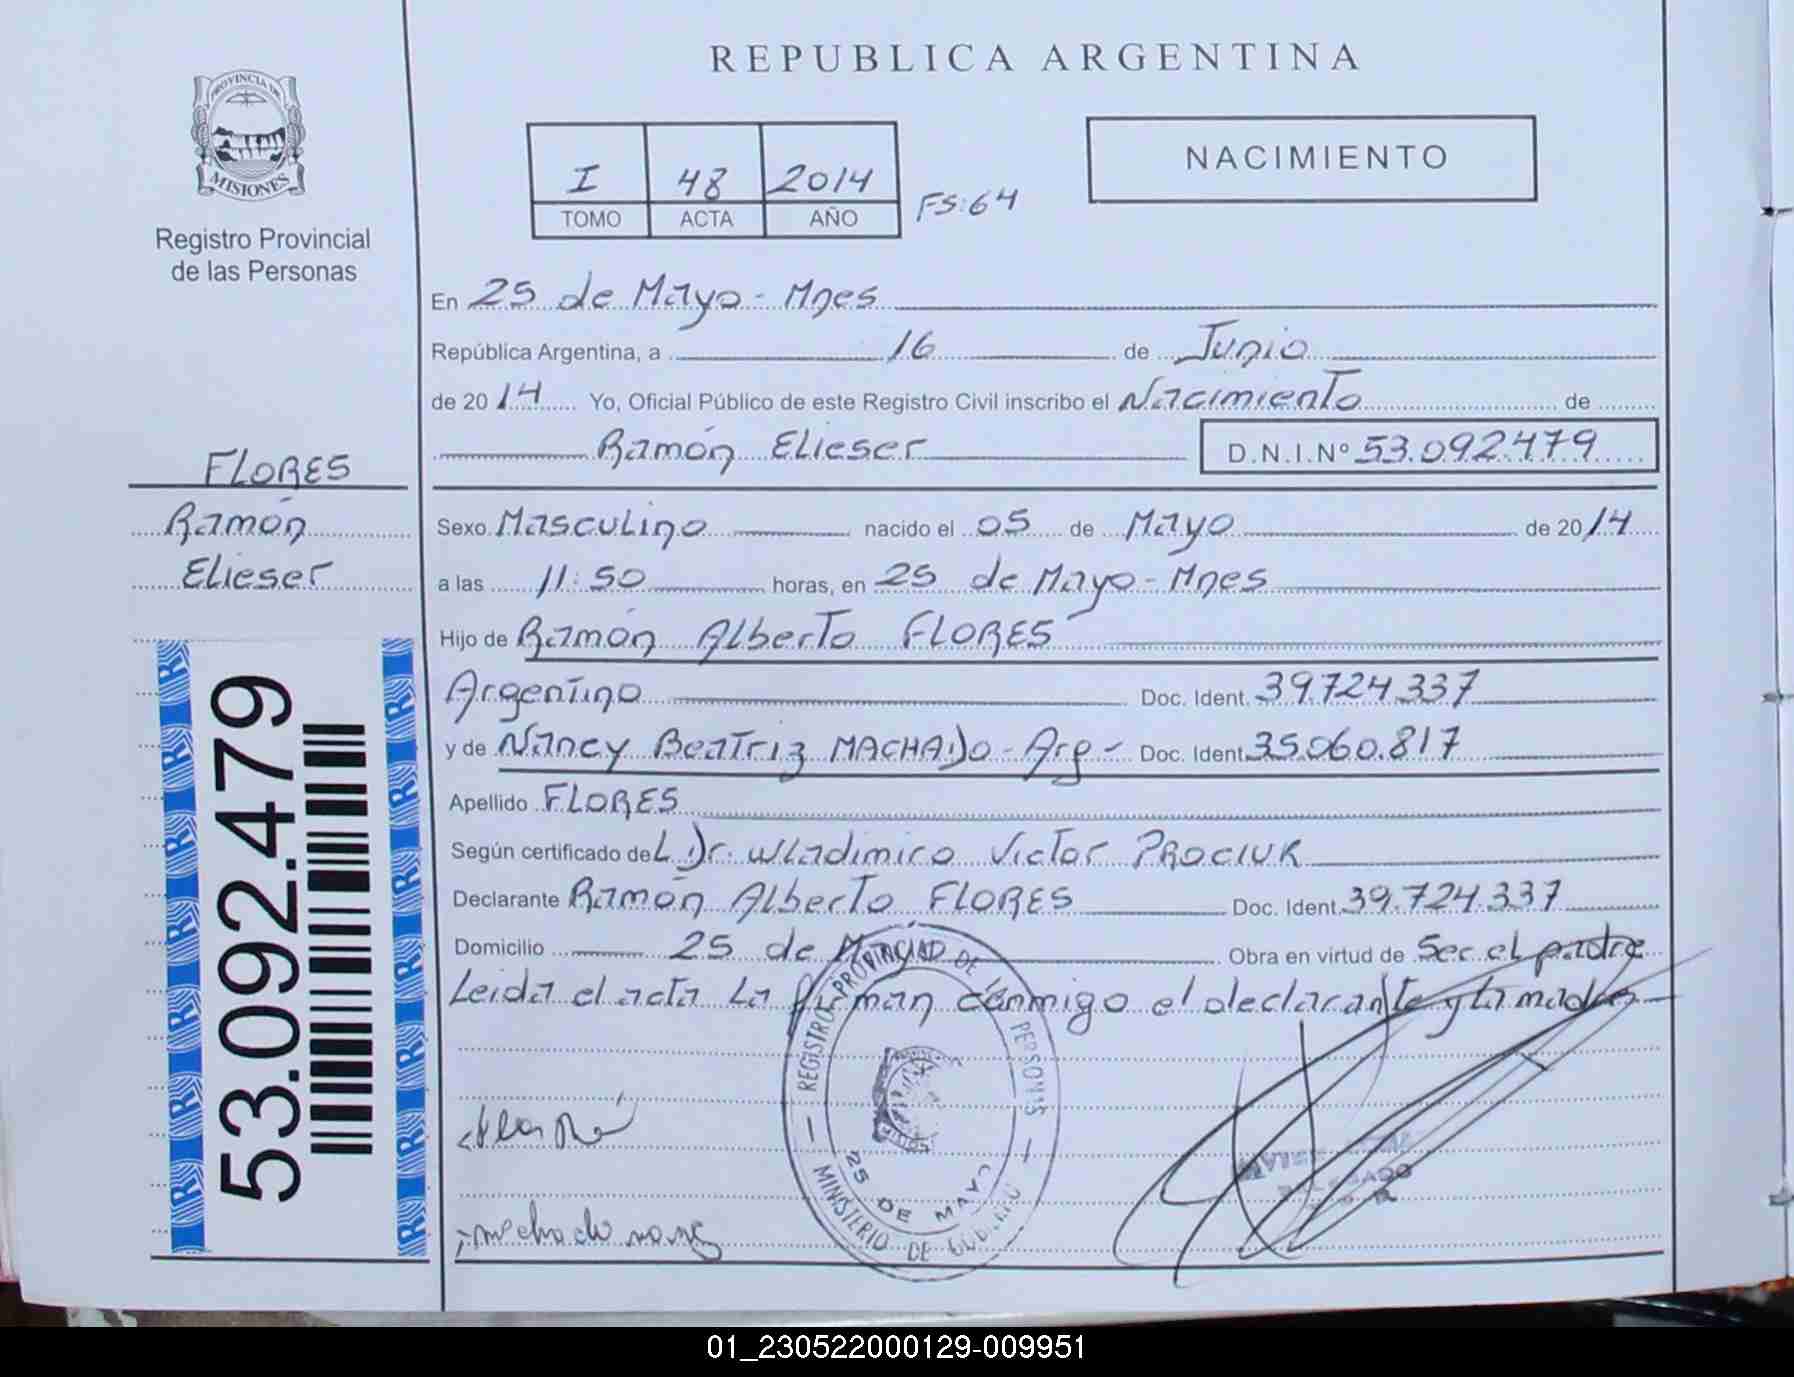 REPUBLICA ARGENTINA
PROVINCIA DE
MISIONES
Registro Provincial
de las Personas
I 48 2014
TOMO ACTA AÑO
FS:64
NACIMIENTO
En 25 de Mayo - Mnes
República Argentina, a 16 de Junio
de 2014 Yo, Oficial Público de este Registro Civil inscribo el Nacimiento de
Ramón Elieser D.N.I.Nº 53.092.479
FLORES
Ramón
Elieser
Sexo Masculino nacido el 05 de Mayo de 2014
a las 11:50 horas, en 25 de Mayo - Mnes
Hijo de Ramón Alberto FLORES
Argentino Doc. Ident. 39.724.337
y de Nancy Beatriz MACHADO - Arg - Doc. Ident. 35.060.817
Apellido FLORES
Según certificado del Dr. Wladimiro Victor PROCIUK
Declarante Ramón Alberto FLORES Doc. Ident. 39.724.337
Domicilio 25 de Mayo Obra en virtud de Ser el padre
Leida el acta La firman conmigo el declarante y la madre
53.092.479
REGISTRO PROVINCIAL DE LAS PERSONAS
25 DE MAYO
MINISTERIO DE GOBIERNO
01_230522000129-009951